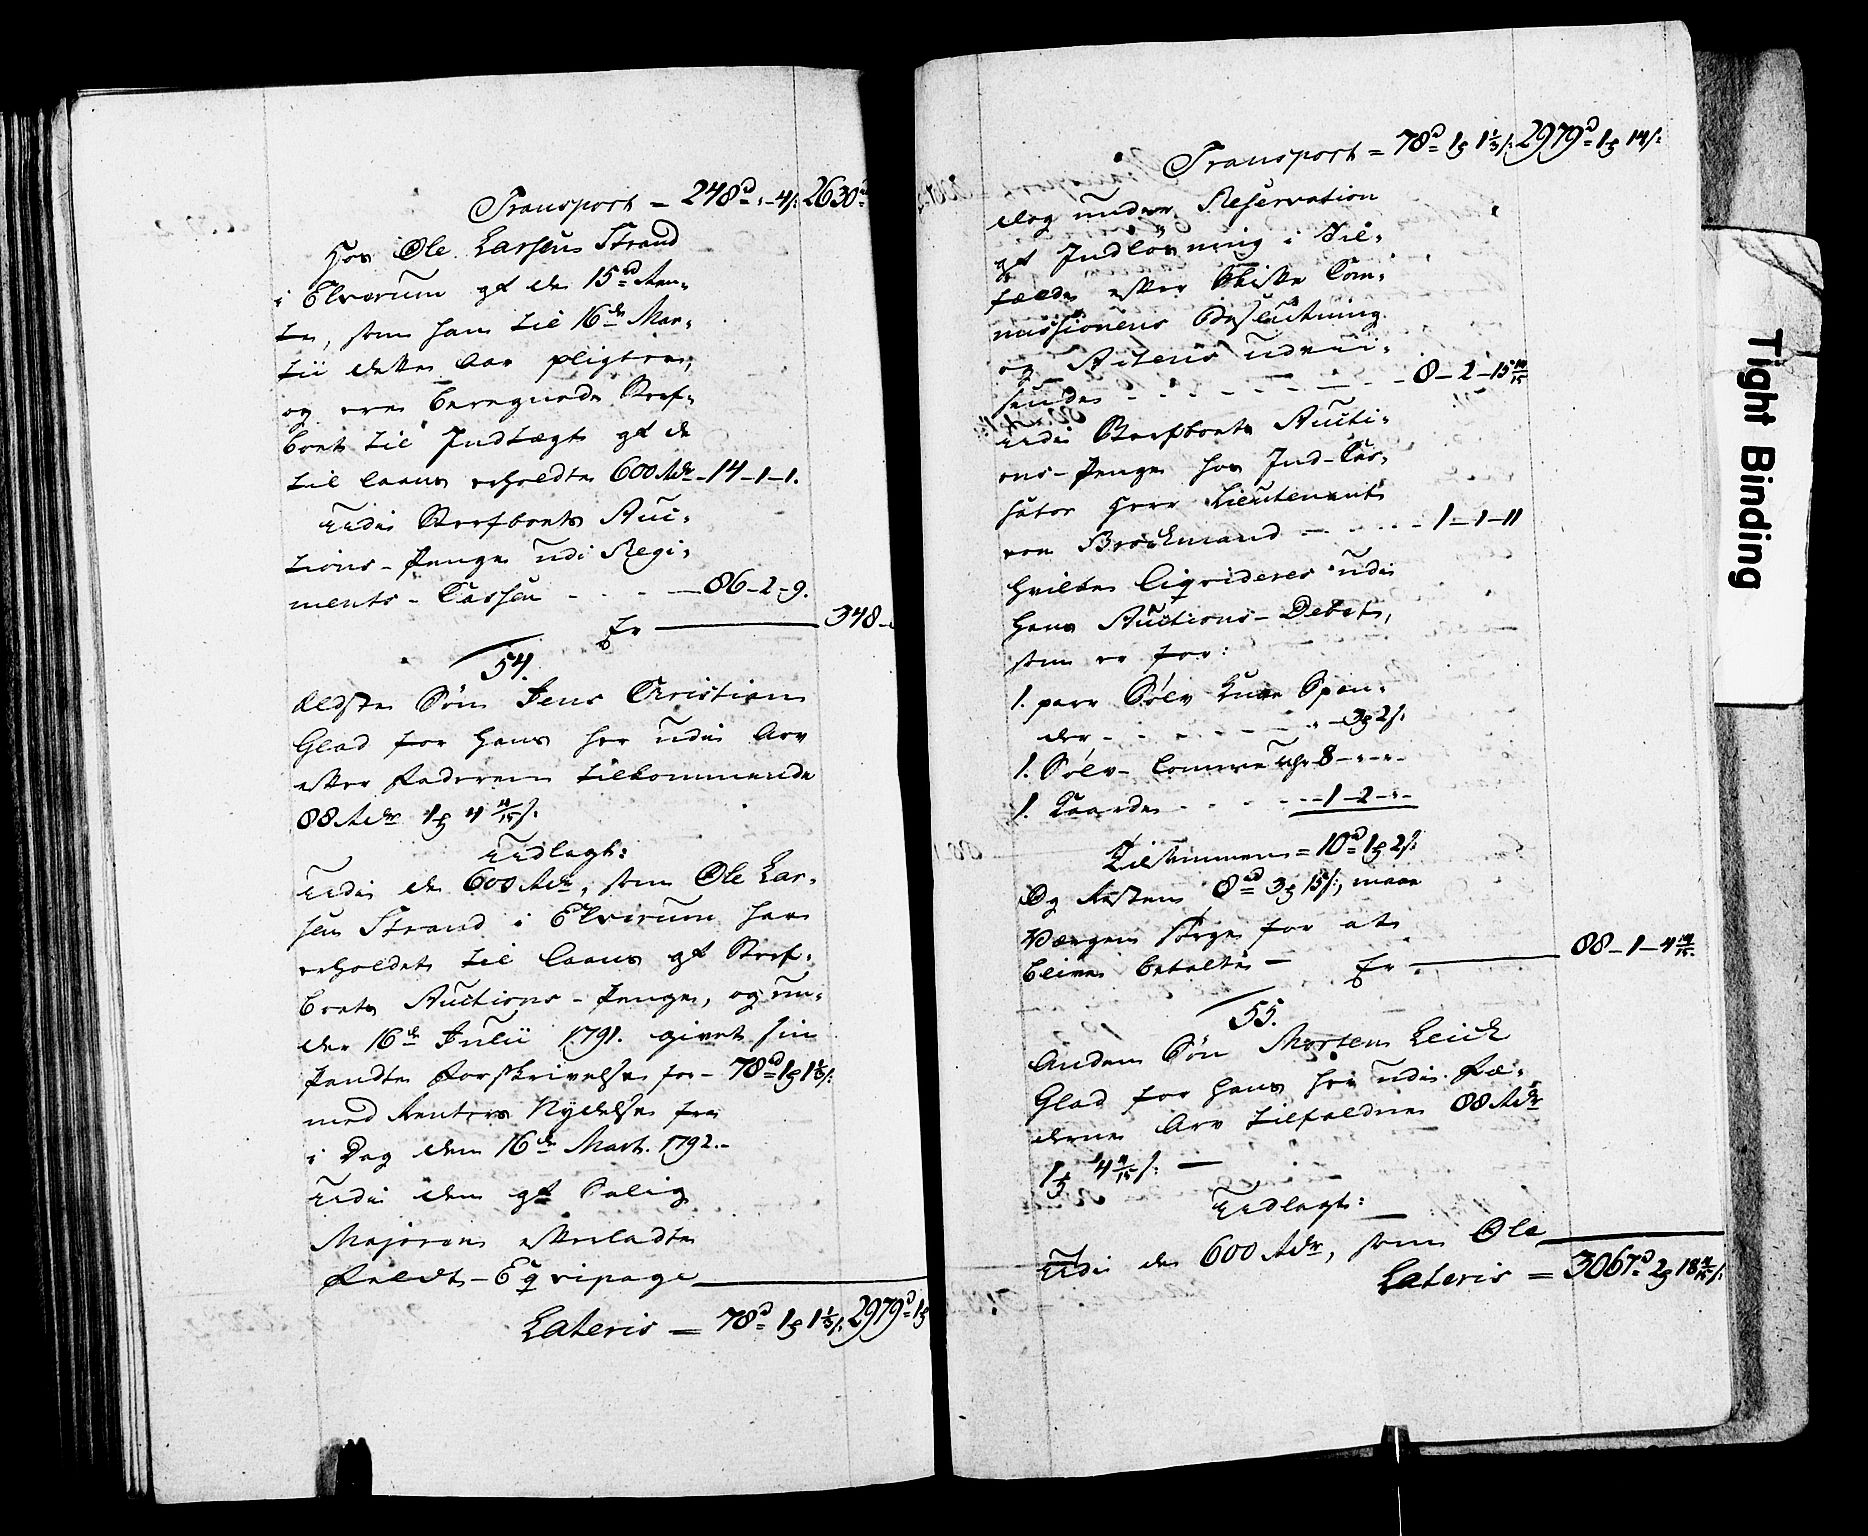 Transport = 248d " - 4 s: 2630d
Hos Ole Larsens Strand
i Elverum af de 15d Ren-
te, som han til 16de Mar-
tii dette Aar pligter,
og er beregnede Sterf-
boet til Indtægt af de
til Laans erholdte 600 Rdr - 14 - 1 - 1.
Udi Sterfboets Auc-
tions-Penge udi Regi-
ments-Cassen - - - 86 - 2 - 9.
Er 348 -
54.
Ældste Søn Jens Christian
Glad for hans her udi Arv
efter Faderen tilkommende
88 Rdr 1 ß 4 4/15 s.
Udlagt:
Udi de 600 Rdr, som Ole Lar-
sen Strand i Elverum har
erholdet til Laans af Sterf-
boets Auctions-Penge, og un-
der 16de Julii 1791. givet sin
Pandte Forskrivelse for - 78d 1 ß 1 1/3 s:
med Renters Nydelse fra
i Dag den 16de Mart. 1792. -
Udi den af Salig
Majoren efterladte
Feldt-Eqvipage
Lateris = 78d 1 ß 1 1/3 s: 2979d 1 ß
Transport = 78d 1 ß 1 1/3 s: 2979d 1 ß 14 s:
dog under Reservation
af Indløsning i Til-
fælde efter Skifte Com-
missionens Beslutning
og Actens udvii-
sende - - - - - 8 - 2 - 15 14/15
Udi Sterfboets Aucti-
ons-Penge hos Ind-Cas-
sator Herr Lieutenant
von Brockmand - - - 1 - 1 - 11
hvilke liqvideres udi
hans Auctions-Debet,
som er for:
1. parr Sølv Knæ Spæn-
der - - - - " - 3 ß 2 s:
1. Sølv- Lomme Uhr 8 - " - " -
1. Kaarde - - - 1 - 2 - " -
Tilsammen = 10d 1 ß 2 s:
Og Resten 8d 3 ß 15 s:, maae
Værgen sørge for at
blive betalte - Er 88 - 1 - 4 4/15.
55.
Anden Søn Morten Leick
Glad for hans her udi Fæ-
derne Arv tilfaldne 88 Rdr
1 ß 4 4/15 s: -
Udlagt:
Udi de 600 Rdr, som Ole
Lateris = 3067d 2 ß 18 4/15 s:
Tight Binding